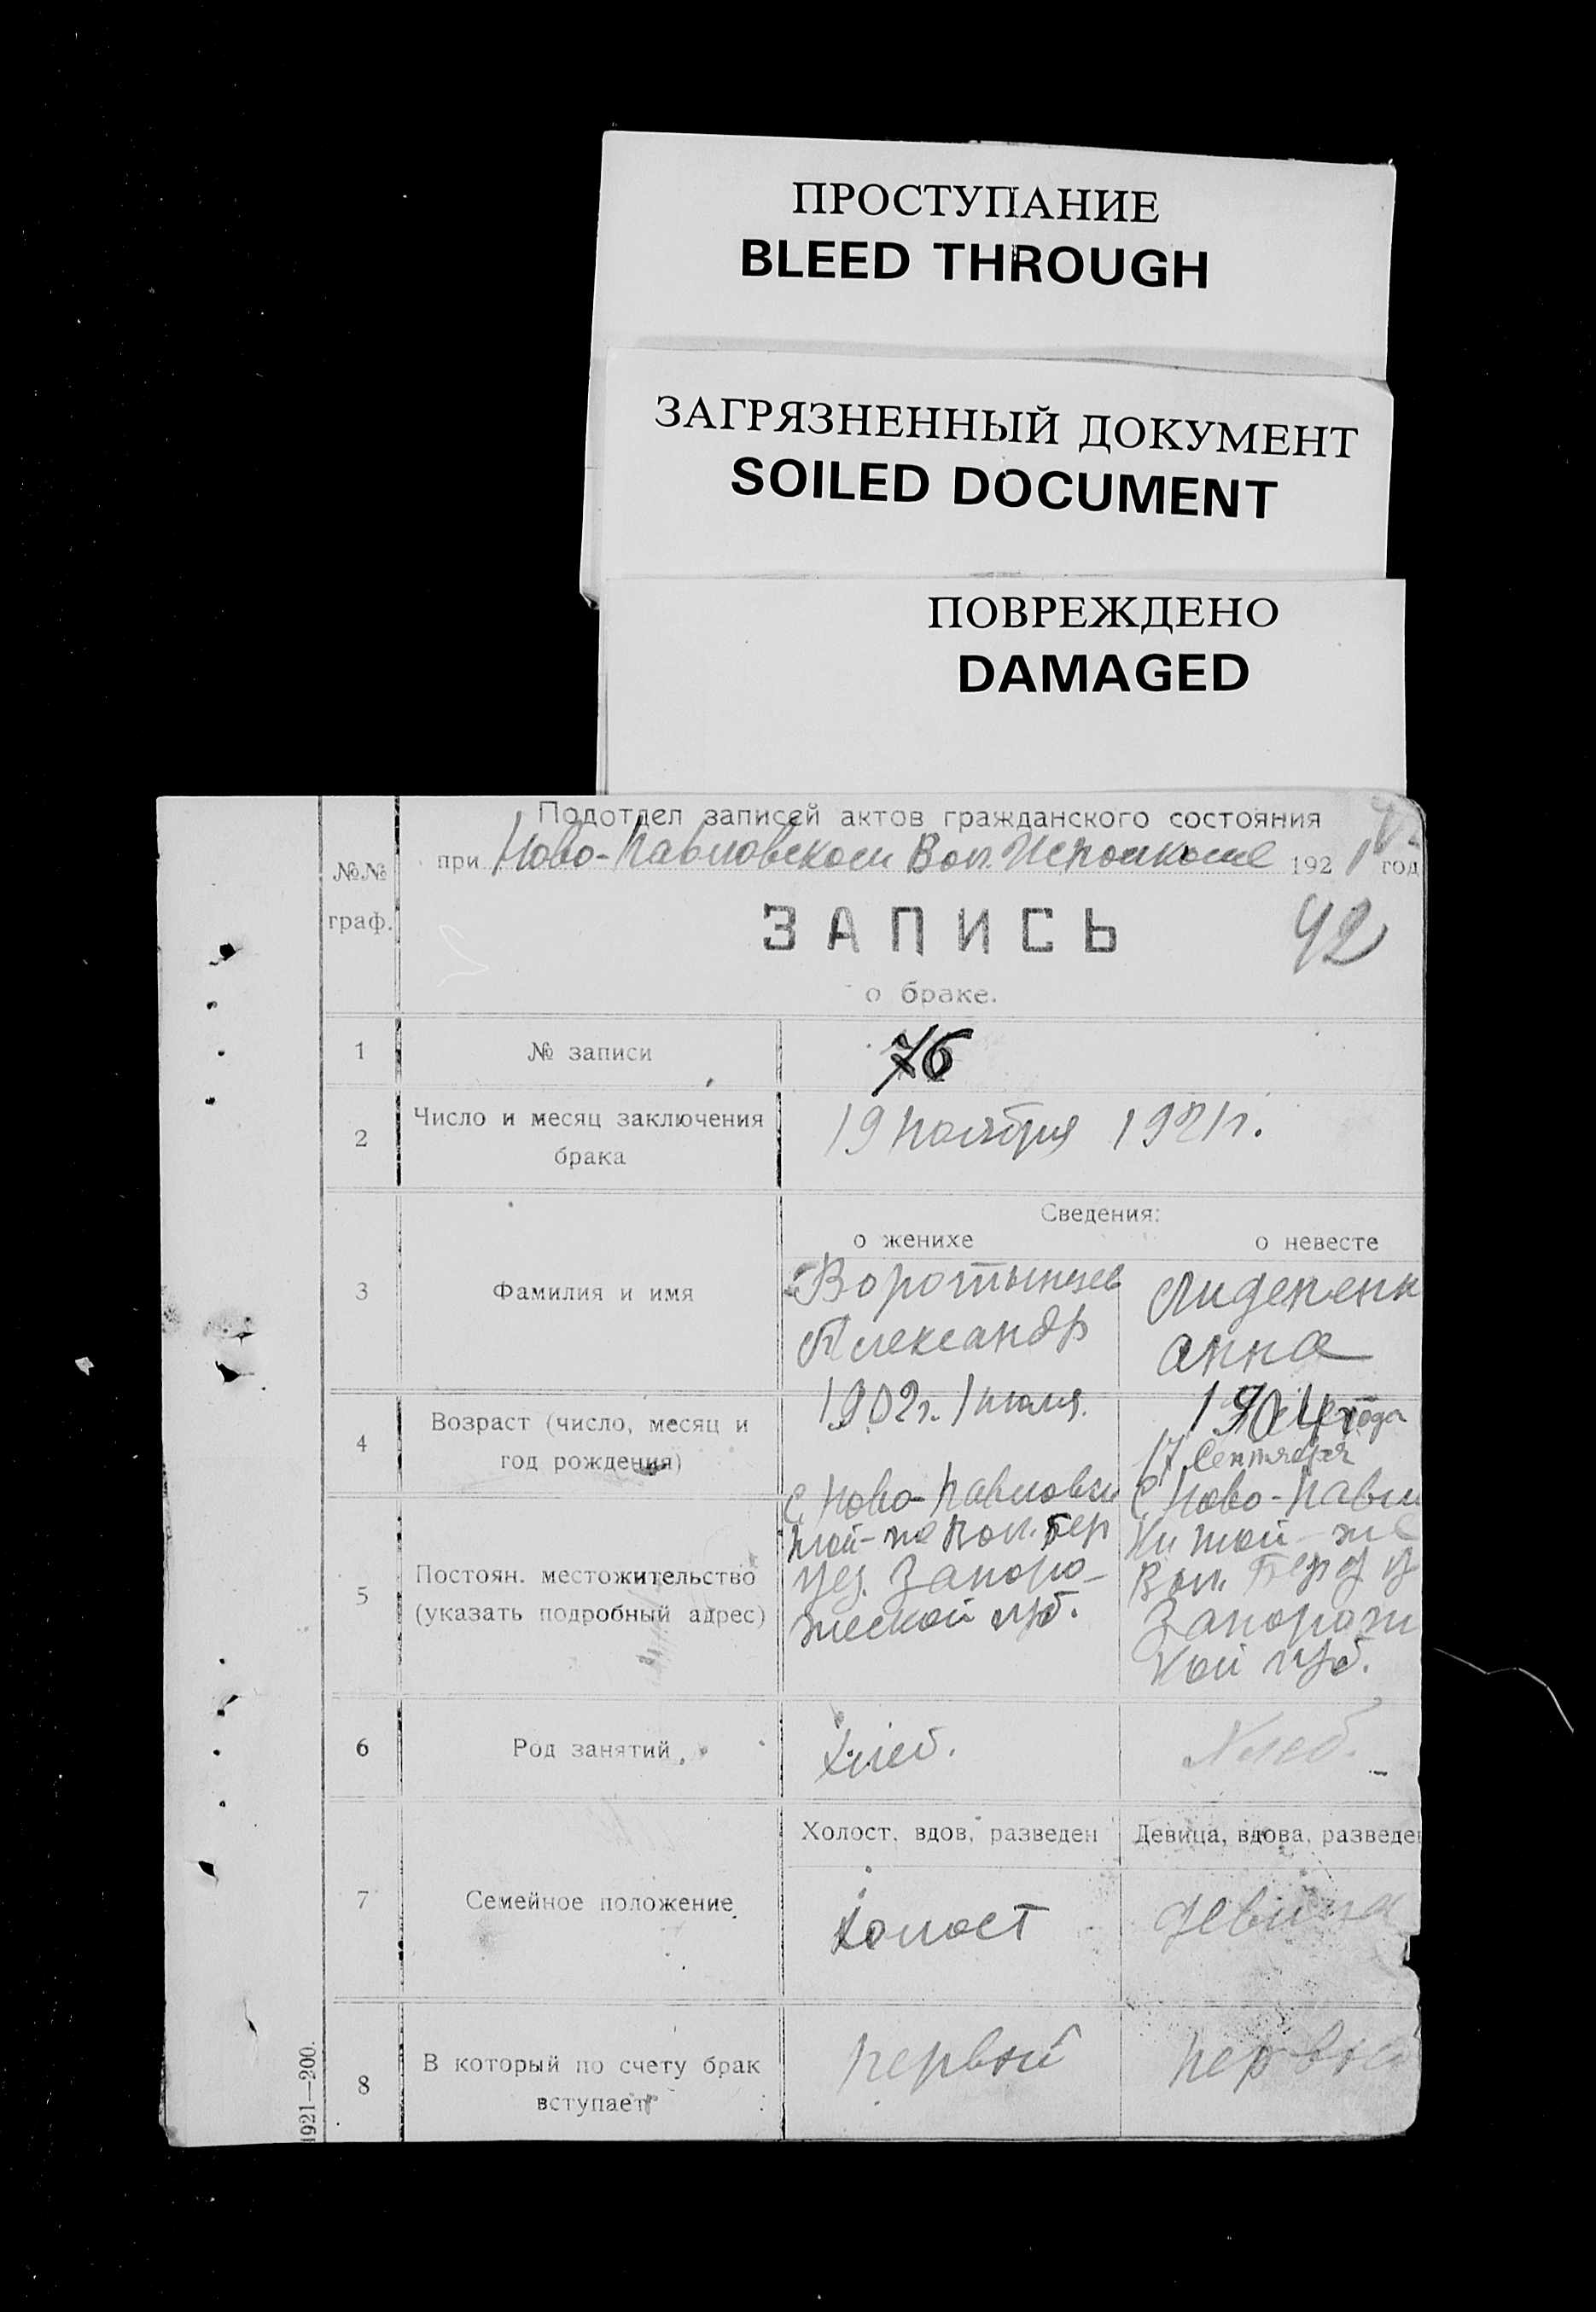 ПРОСТУПАНИЕ
BLEED THROUGH
ЗАГРЯЗНЕННЫЙ ДОКУМЕНТ
SOILED DOCUMENT
ПОВРЕЖДЕНО
DAMAGED
Подотдел записей актов гражданского состояния
при Ново-Павловском Вол. Исполкоме 1921 год
№№ граф.
ЗАПИСЬ
42
о браке.
1 № записи 76
2 Число и месяц заключения брака 19 ноября 1921 г.
Сведения:
о женихе о невесте
3 Фамилия и имя
Воротынцев
Александр
Анна
4 Возраст (число, месяц и год рождения)
1902 г. 1 июля.
1904 года
17 Сентября
5 Постоян. местожительство (указать подробный адрес)
с Ново-Павловки
той-же Вол. Бер
уез. Запоро-
жеской губ.
с Ново-Павлов
ки той-же
Вол. Берд. у
Запорож
кой губ.
6 Род занятий Хлеб. Хлеб.
Холост, вдов, разведен Девица, вдова, разведен
7 Семейное положение Холост девица
8 В который по счету брак вступает первый первый
1921—200.